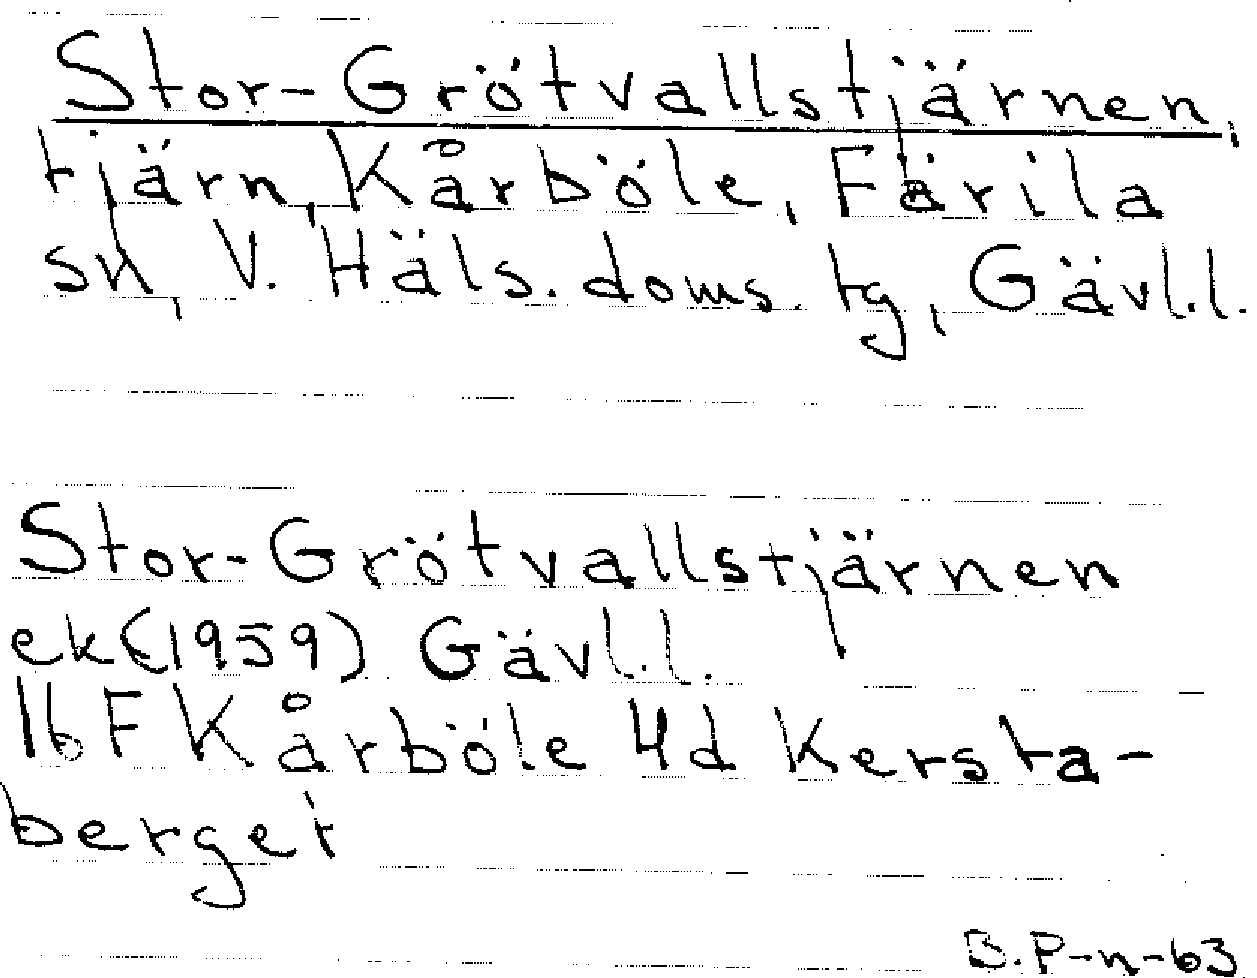 Stor-Grötvallstjärnen,
tjärn, Kårböle, Färila
sn, V. Häls. doms. tg, Gävl.l.
Stor-Grötvallstjärnen
ek (1959) Gävl.l.
16F Kårböle 4d Kersta-
berget
B.P-n-63